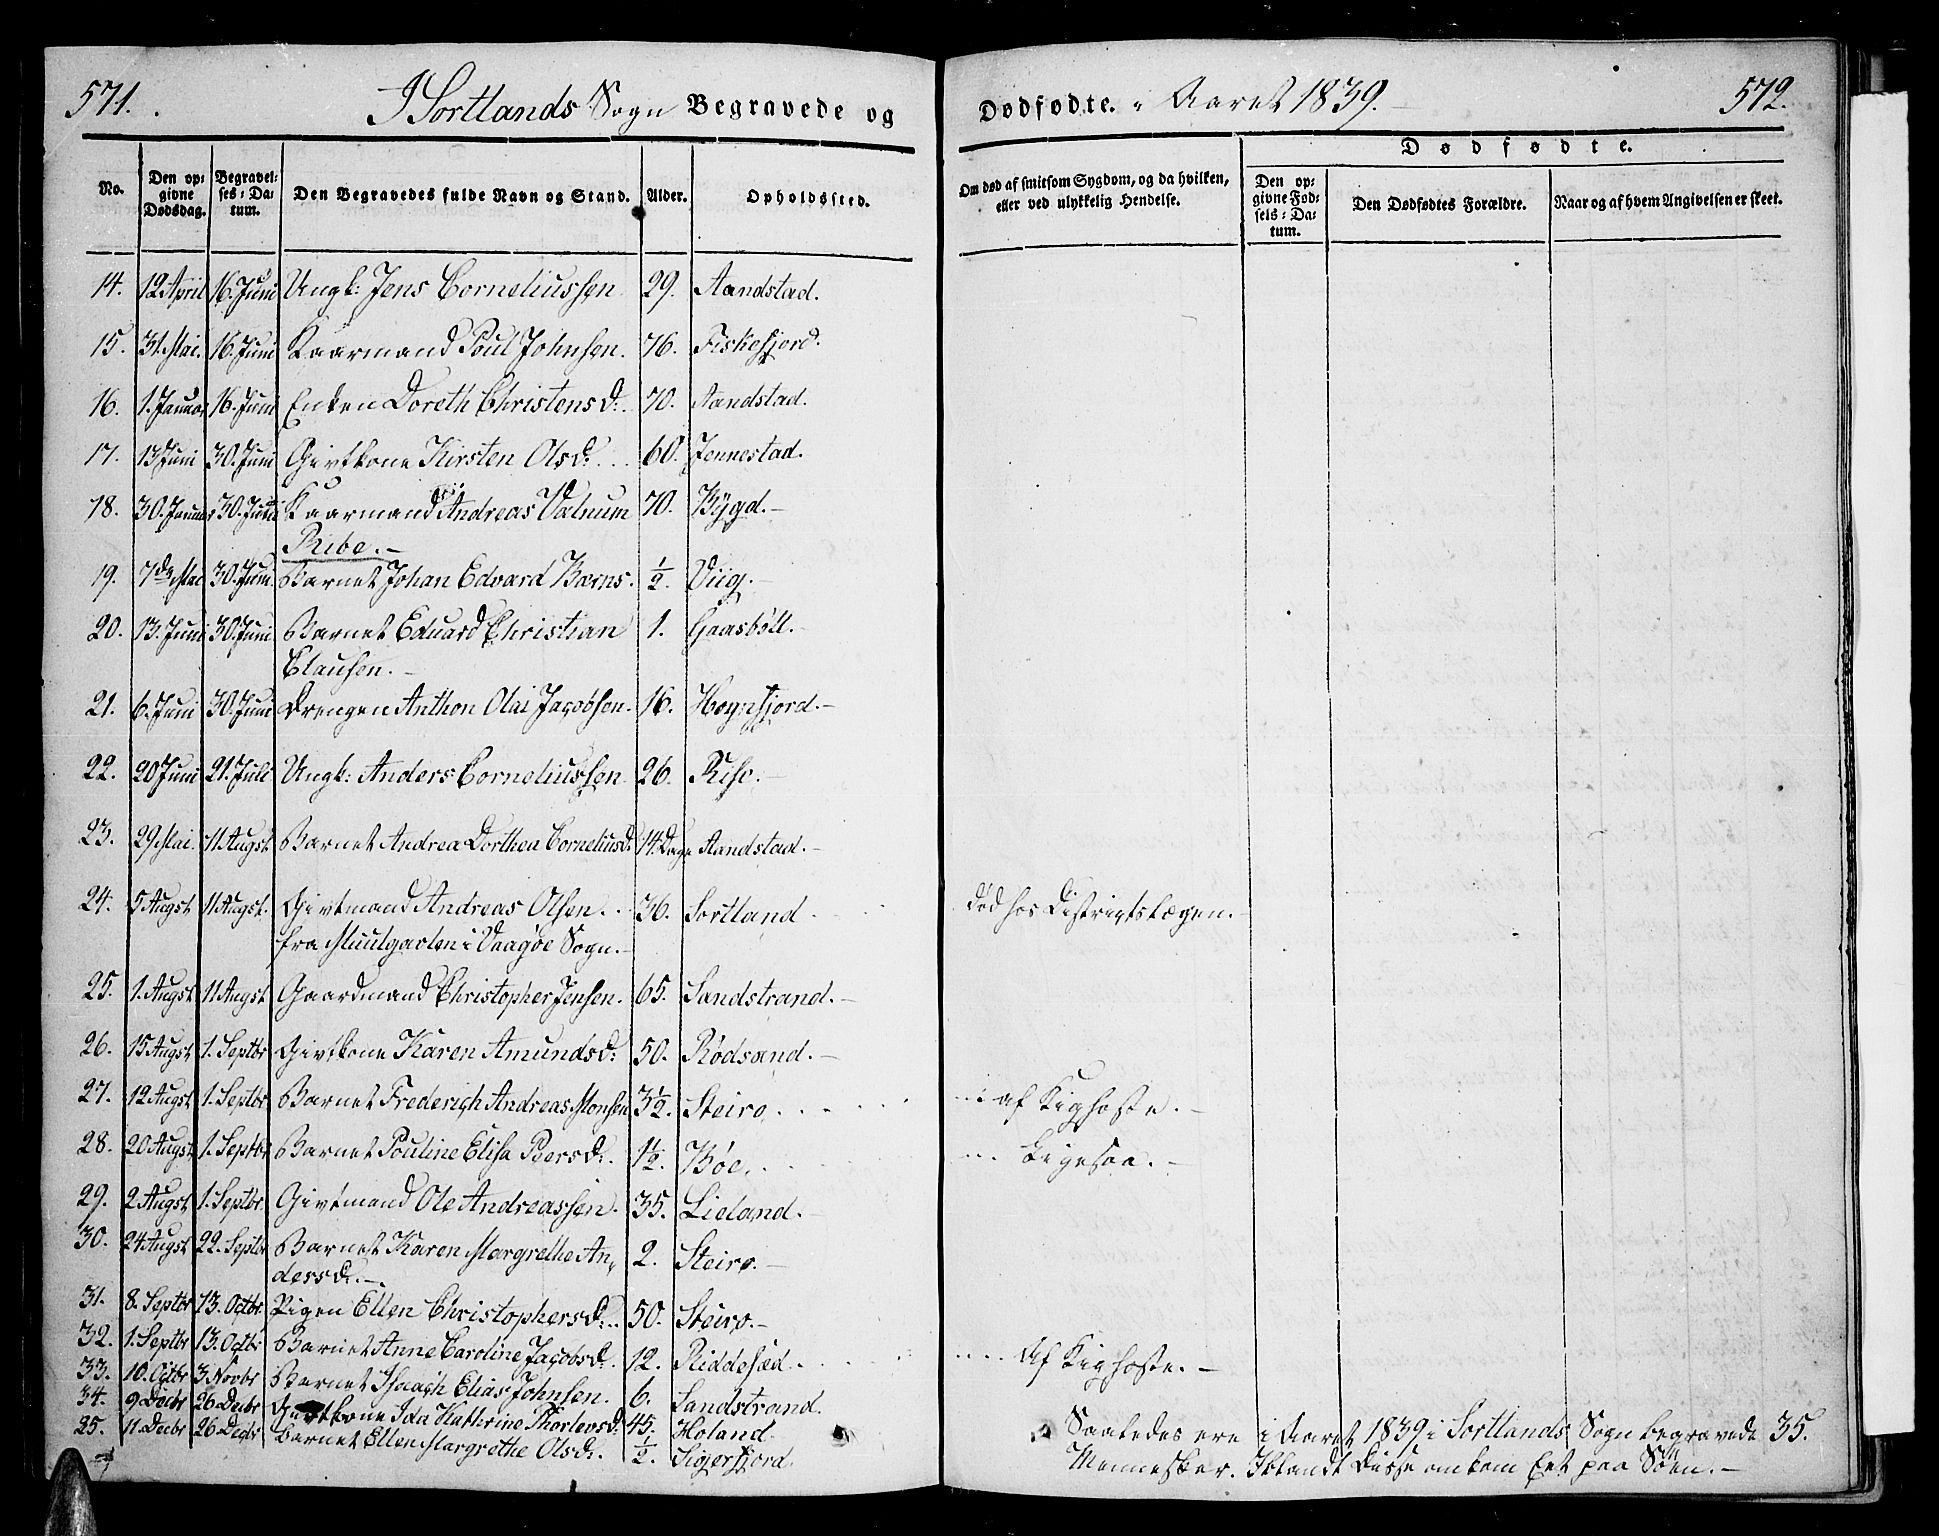 571. I Sortlands Sogn Begravede og
Dødfødte. i Aaret 1839. 572.
No. Den opgivne Dødsdag. Begravelses-Datum. Den Begravedes fulde Navn og Stand. Alder. Opholdssted.
Om død af smitsom Sygdom, og da hvilken, eller ved ulykkelig Hendelse. Dødfødte. Den opgivne Fødsels-Datum. Den Dødfødtes Forældre. Naar og af hvem Angivelsen er skeet.
14. 12 April 16. Juni Ungk: Jens Corneliussen 29. Aandstad.
15. 31. Mai. 16. Juni Kaarmand Poul Johnsen. 76. Fiskefjord.
16. 1. Januar 16. Juni Enken Doreth Christensd:. 70. Aandstad.
17. 13 Juni 30. Juni Givtkone Kirsten Olsd:... 60. Jennestad.
18. 30. Januar 30. Juni Kaarmand Andreas Valnum 70. Bygd.-
Ribe.-
19. 7de Mai 30. Juni Barnet Johan Edvard Bærns. ½. Viig.-
20. 13. Juni 30. Juni Barnet Eduard Christian 1. Gaasbøll.-
Clausen.-
21. 6. Juni 30. Juni Drengen Anthon Olai Jacobsen. 16. Hognfjord.-
22. 20 Juni 21. Juli Ungk: Anders Corneliussen 26. Rise.-
23. 29 Mai. 11 Augst. Barnet Andrea Dorthea Corneliusd: 14. Dage Aandstad.-
24. 5 Augst 11 Augst. Givtmand Andreas Olsen.. 36. Sortland død hos Distrigtslægen.-
fra Muulgaden i Vaagøe Sogn.-
25. 1. Augst 11 Augst Gaardmand Christopher Jensen. 65. Sandstrand.-
26. 15 Augst 1. Septbr Givtkone Karen Amundsd: 50. Rødsand.-
27. 12 Augst 1. Septbr Barnet Frederich Andreas Monsen 3½. Steiro. af Kighoste.-
28. 20 Augst 1. Septbr Barnet Pouline Elisa Peersd:. 1½. Bøe. Ligesaa.-
29. 2 Augst 1. Septbr. Givtmand Ole Andreassen. 35. Lieland.-
30. 24 Augst 22. Septbr Barnet Karen Margrethe An- 2. Steiro.-
dersd:.-
31. 8. Septbr 13. Octbr. Pigen Ellen Christophersd:.. 50. Steiro.-
32. 1. Septbr 13. Octbr Barnet Anne Caroline Jacobsd:. 12. Riddesæd. Af Kighoste.-
33. 10. Octbr 3 Novbr Barnet Isaach Elias Johnsen. 6. Sandstrand.
34. 9 Decbr 26 Decbr Givtkone Ida Kathrine Thorlevsd: 45. Holand.
35. 11. Decbr 26 Decbr Barnet Ellen Margrethe Olsd:. ½. Sigerfjord.
Saaledes ere i Aaret 1839 i Sortlands Sogn begravede 35.
Mennesker. Iblandt disse omkom Eet paa Søen.-